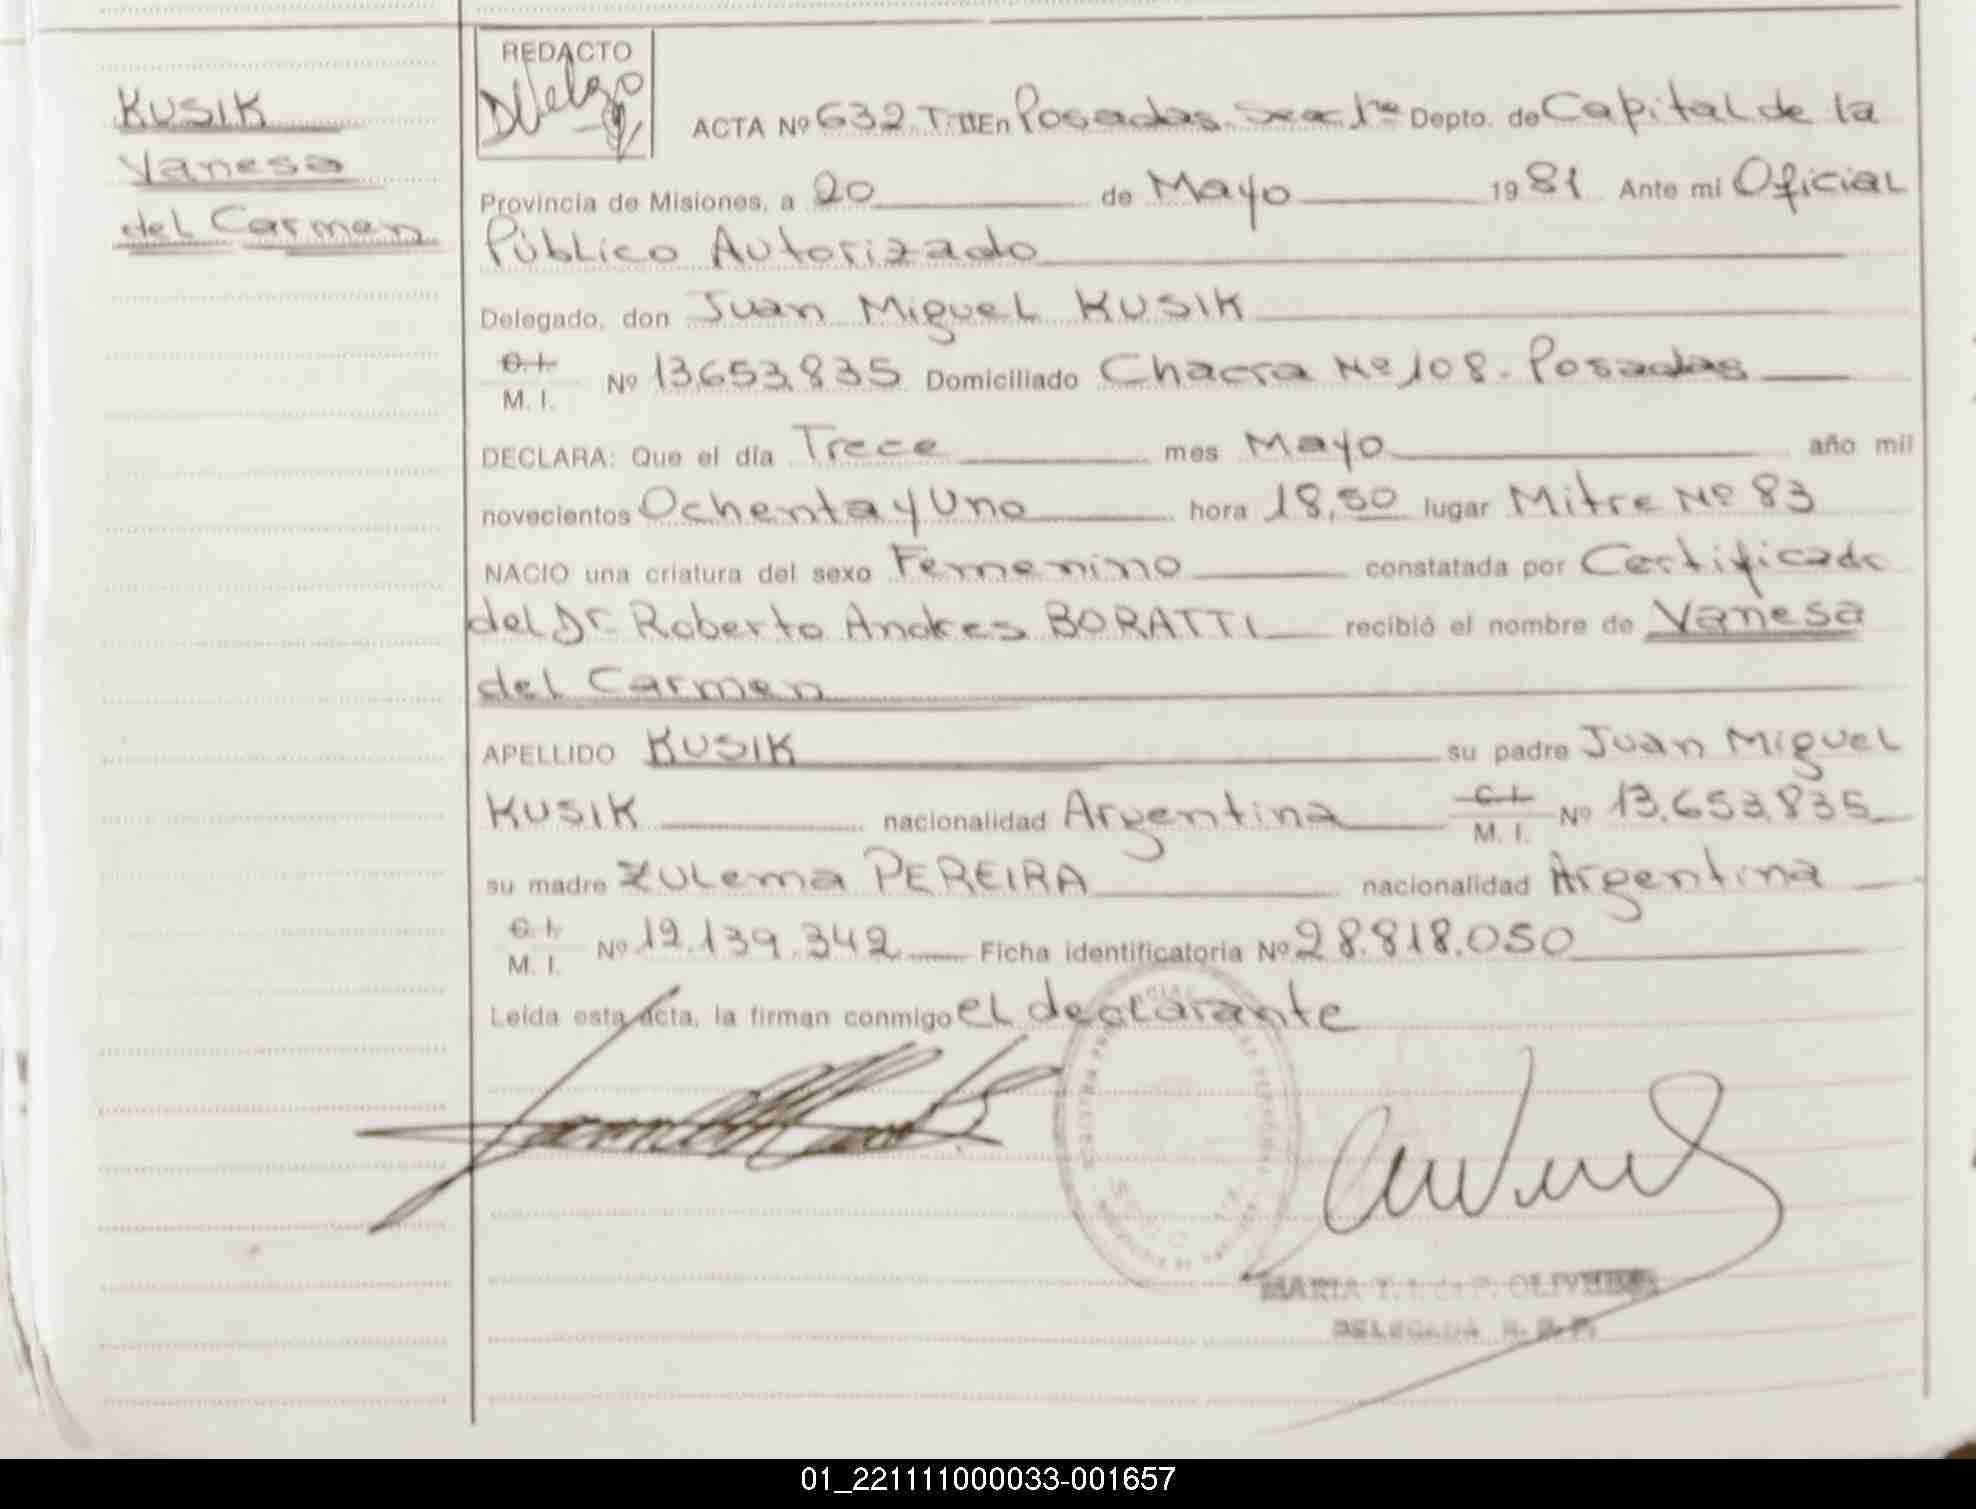 KUSIK
Vanesa
del Carmen
REDACTO
ACTA Nº 632 T: II En Posadas Secc 1ra Depto. de Capital de la
Provincia de Misiones, a 20 de Mayo 1981 Ante mi Oficial
Público Autorizado
Delegado, don Juan Miguel KUSIK
C. I.
M. I. Nº 13.653.835 Domiciliado Chacra Nº 108. Posadas
DECLARA: Que el día Trece mes Mayo año mil
novecientos Ochenta y Uno hora 18,50 lugar Mitre Nº 83
NACIO una criatura del sexo Femenino constatada por Certificado
del Dr. Roberto Andres BORATTI recibió el nombre de Vanesa
del Carmen
APELLIDO KUSIK su padre Juan Miguel
KUSIK nacionalidad Argentina C. I. M. I. Nº 13.653.835
su madre Zulema PEREIRA nacionalidad Argentina
C. I.
M. I. Nº 12.139.342 Ficha identificatoria Nº 28.818.050
Leída esta acta, la firman conmigo el declarante
MARIA T. I. de P. OLIVEIRA
DELEGADA R. P.
01_221111000033-001657